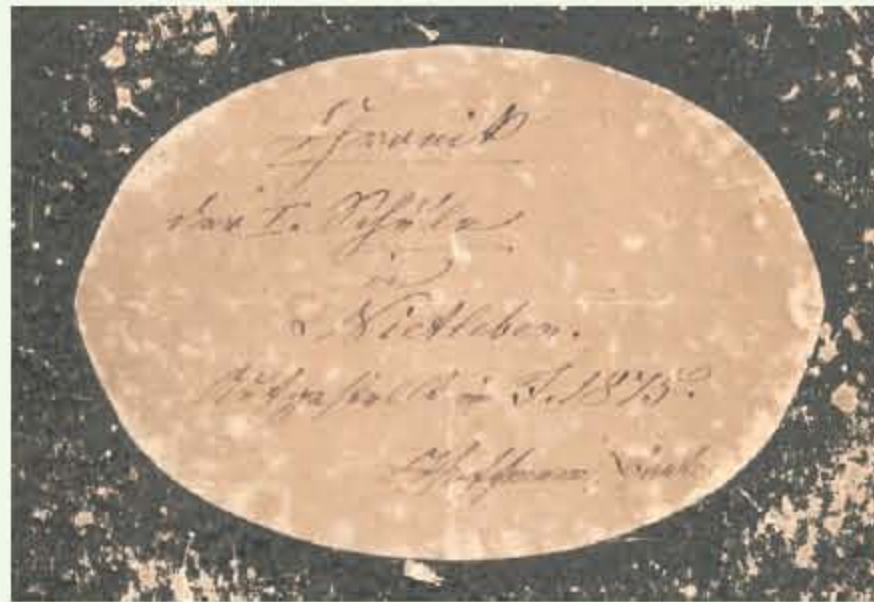 Chronik
der I. Schule
in
Nietleben.
Aufgestellt im J. 1875.